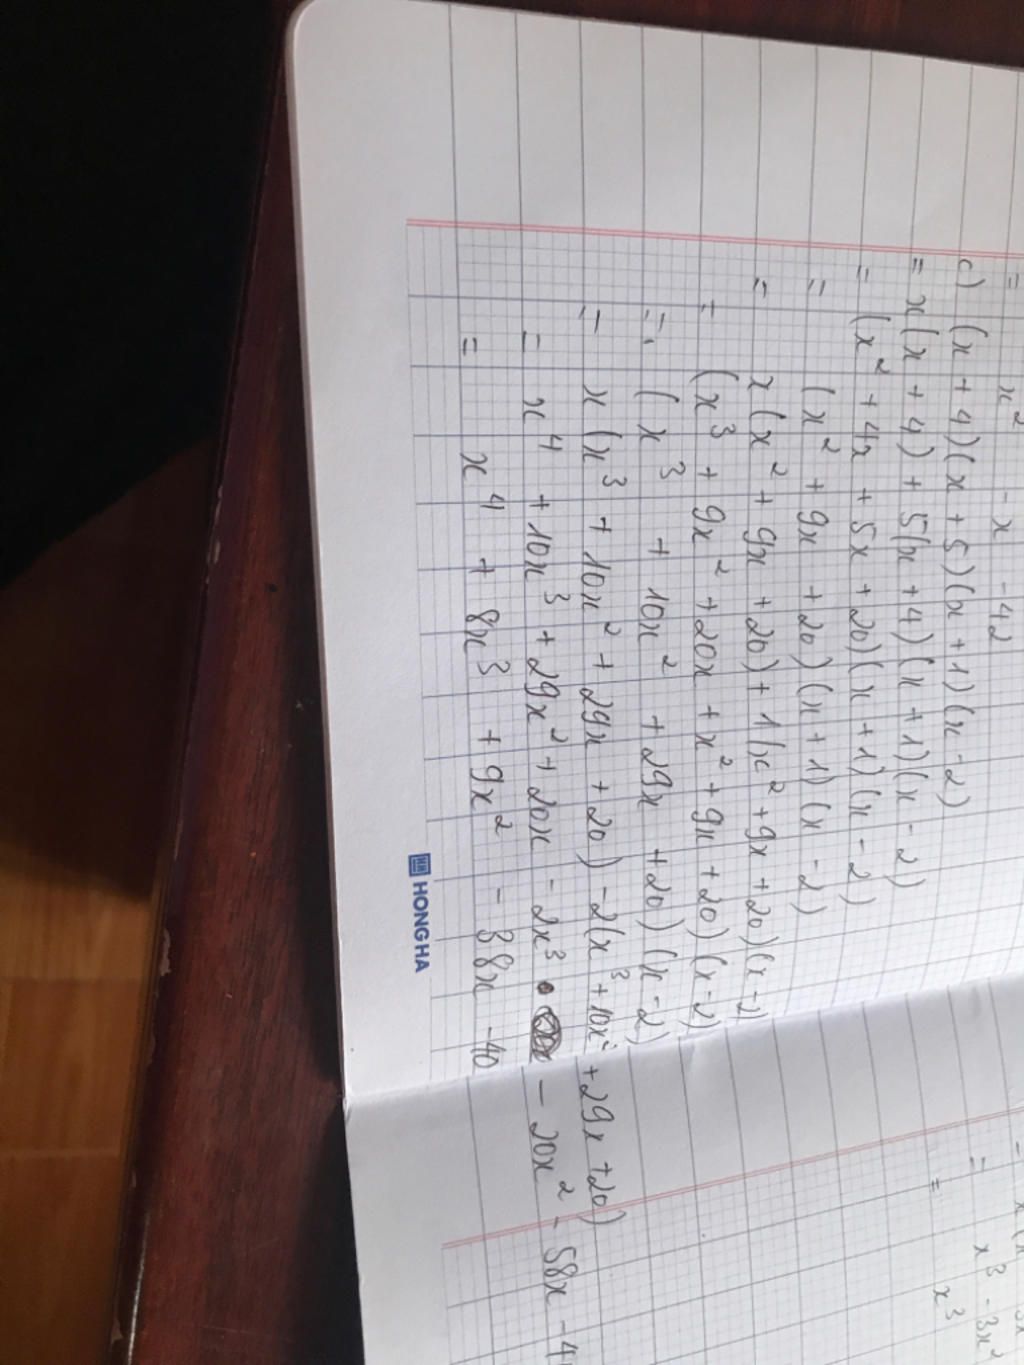 = x² - x - 42
c) (x + 4)(x + 5)(x + 1)(x - 2)
= x(x + 4) + 5(x + 4)(x + 1)(x - 2)
= (x² + 4x + 5x + 20)(x + 1)(x - 2)
= (x² + 9x + 20)(x + 1)(x - 2)
= x(x² + 9x + 20) + 1(x² + 9x + 20)(x - 2)
= (x³ + 9x² + 20x + x² + 9x + 20)(x - 2)
= (x³ + 10x² + 29x + 20)(x - 2)
= x(x³ + 10x² + 29x + 20) - 2(x³ + 10x² + 29x + 20)
= x⁴ + 10x³ + 29x² + 20x - 2x³ - 20x² - 58x - 4
= x⁴ + 8x³ + 9x² - 38x - 40
HONG HA
= x³ - 3x²
= x³